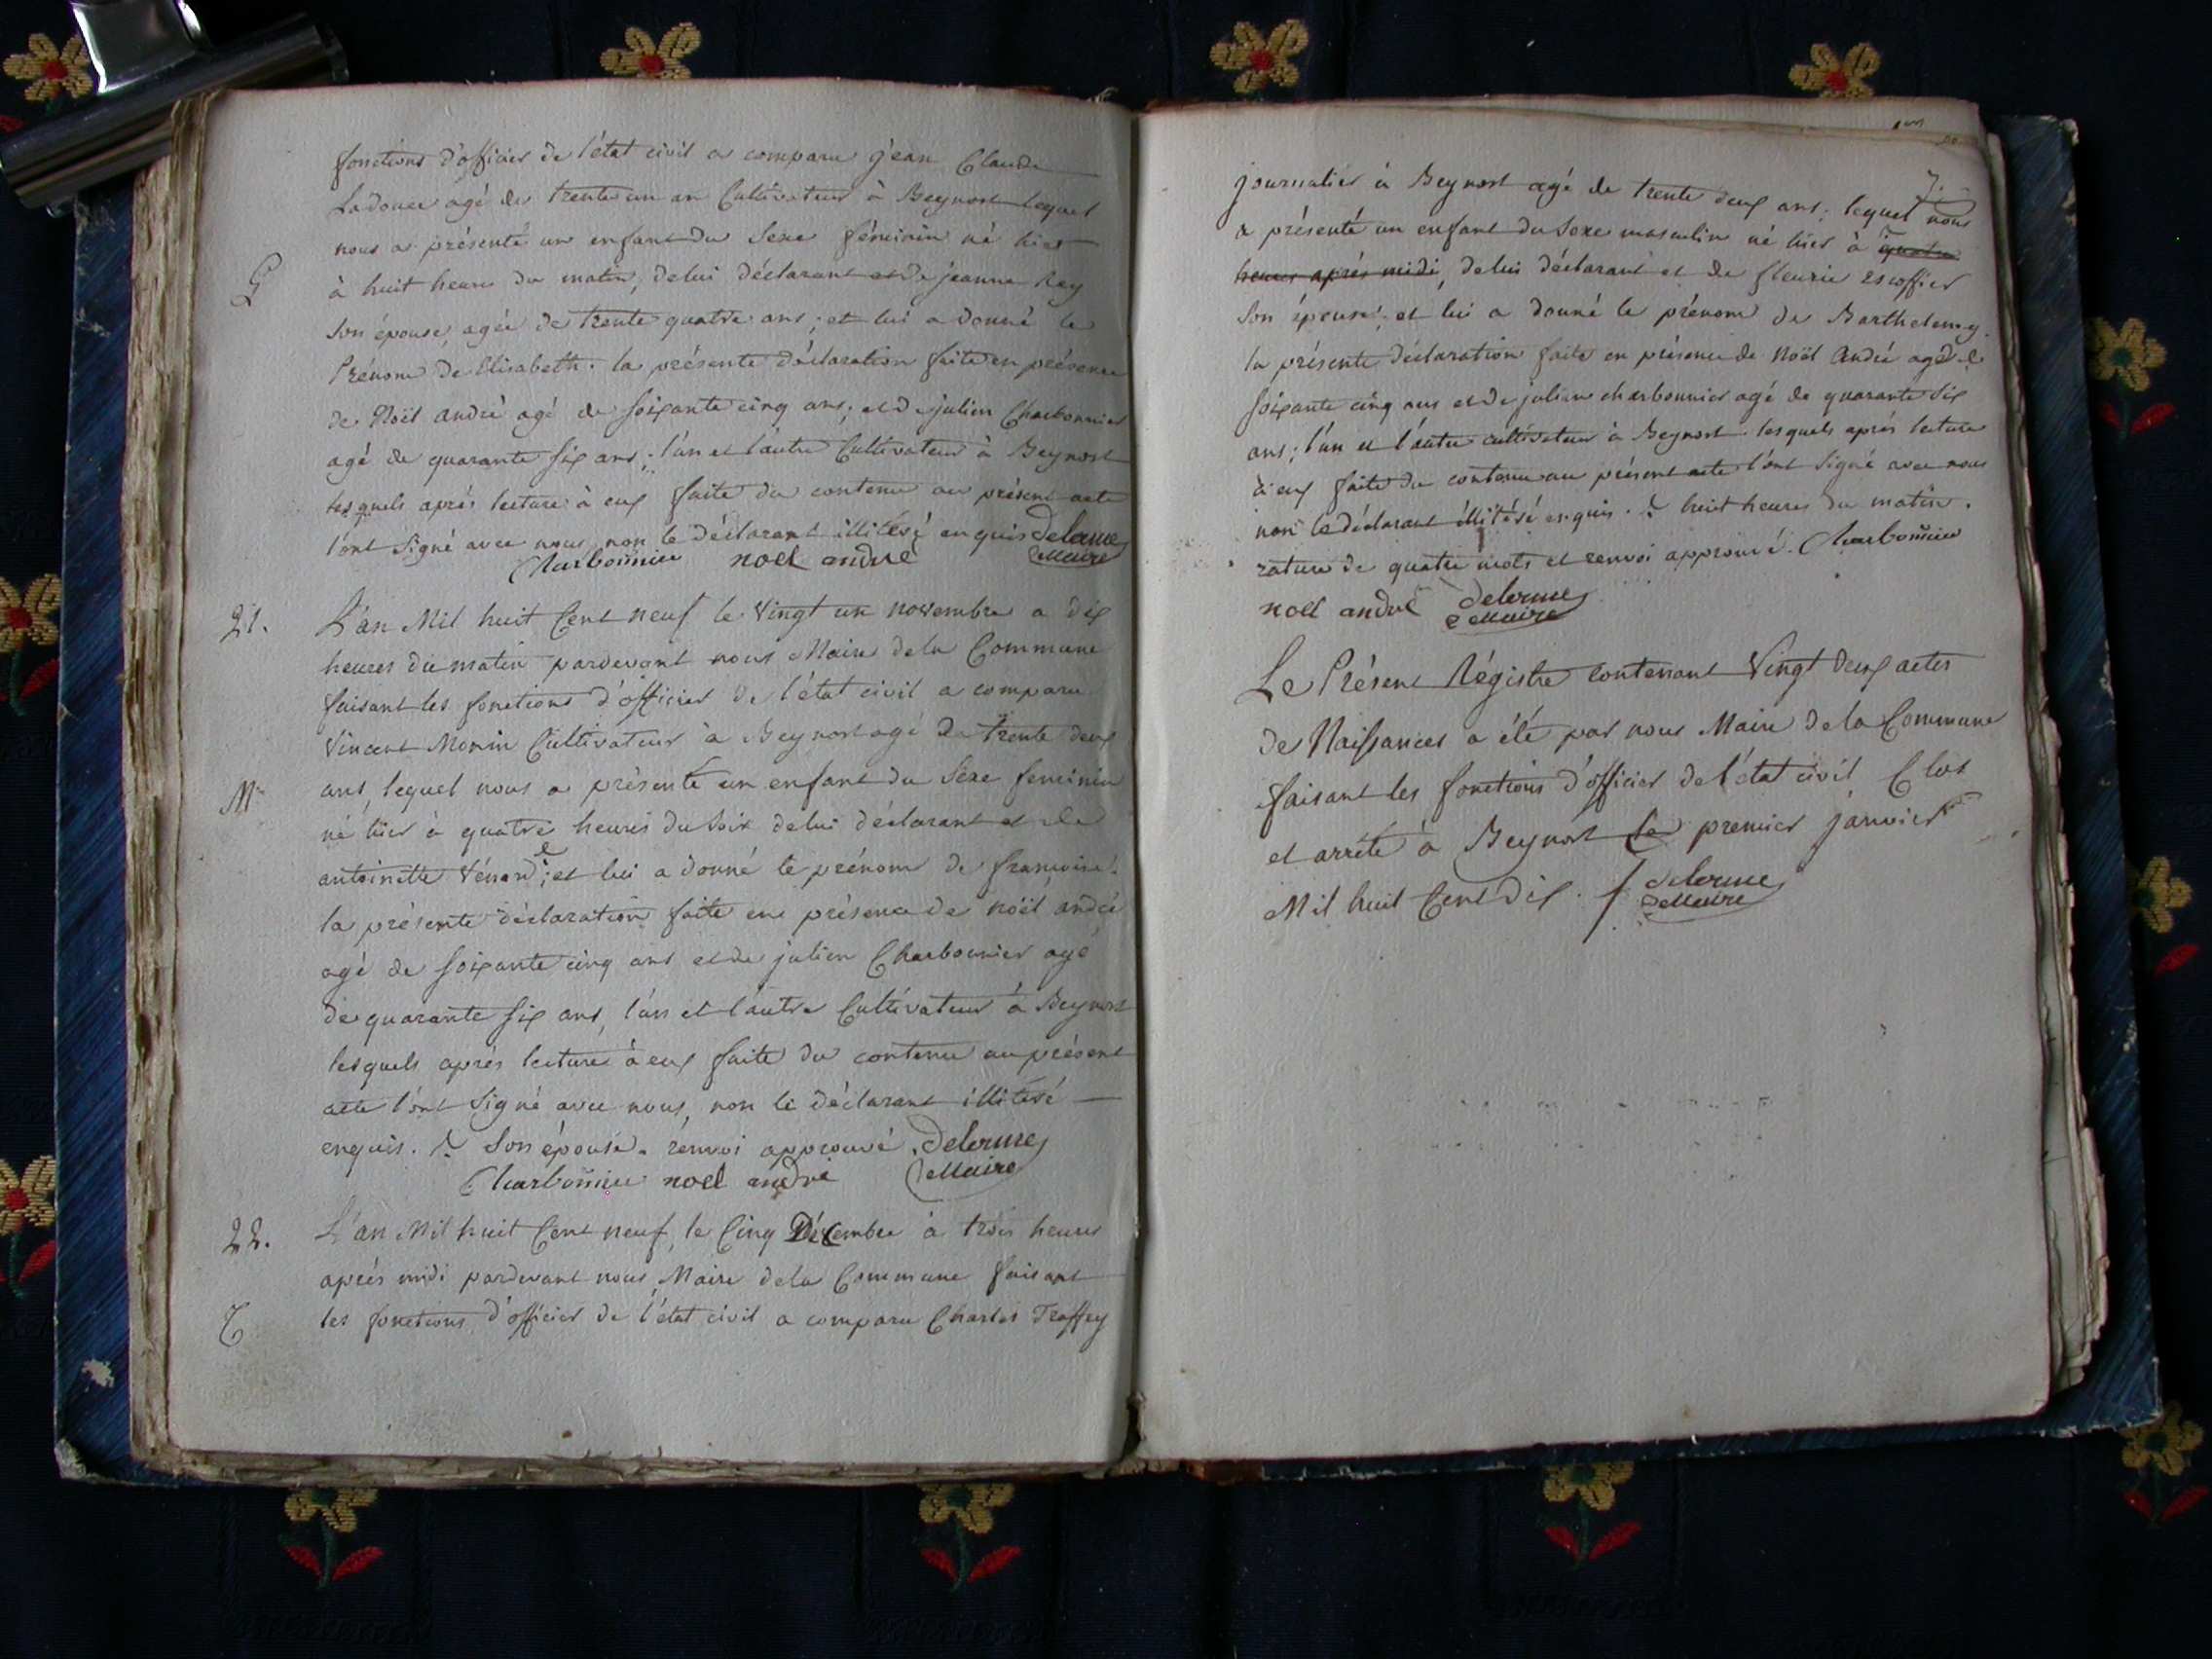 fonctions d'officier de l'état civil a comparu jean Claude
Ladouce agé de trente un an Cultivateur à Beynost lequel
nous a présenté un enfant du Sexe féminin né hier
à huit heures du matin, de lui déclarant et de jeanne Rey
Son épouse, agée de trente quatre ans; et lui a donné le
Prénom de Elisabeth. la présente déclaration faite en présence
de Noël andré agé de soixante cinq ans; et de julien Charbonnier
agé de quarante six ans; l'un et l'autre Cultivateur à Beynost
lesquels aprés lecture à eux faite du contenu au présent acte
l'ont Signé avec nous non le déclarant illitéré enquis Delorme
Charbonnier noel andré Maire
21. L'an Mil huit Cent neuf le Vingt un novembre a dix
heures du matin pardevant nous Maire de la Commune
faisant les fonctions d'officier de l'état civil a comparu
Vincent Monin Cultivateur à Beynost agé de trente deux
M ans, lequel nous a présenté un enfant du Sexe feminin
né hier à quatre heures du Soir de lui déclarant et de
antoinette Vénard; et lui a donné le prénom de francoise.
la présente déclaration faite en présence de noël andré
agé de soixante cinq ans et de julien Charbonnier agé
de quarante six ans, l'un et l'autre Cultivateur à Beynost
lesquels aprés lecture à eux faite du contenu au présent
acte l'ont Signé avec nous, non le déclarant illitéré
enquis. Son épouse. renvoi approuvé. Delorme
Charbonnier noel andré Maire
22. L'an Mil huit Cent neuf, le Cinq Décembre à trois heures
aprés midi pardevant nous, Maire de la Commune faisant
T les fonctions d'officier de l'état civil a comparu Charles Traffey
7.
journalier à Beynost agé de trente deux ans; lequel nous
a présenté un enfant du Sexe masculin né hier à quatre
heures aprés midi, de lui déclarant et de fleurie escoffier
Son épouse; et lui a donné le prénom de Barthelemy.
la présente déclaration faite en présence de Noël André agé de
soixante cinq ans et de julien charbonnier agé de quarante six
ans; l'un et l'autre cultivateur à Beynost lesquels aprés lecture
à eux faite du contenu au présent acte l'ont Signé avec nous
non le déclarant illitéré enquis. huit heures du matin.
rature de quatre mots et renvoi approuvé. Charbonnier
noel andré Delorme
Maire
Le Présent Régistre contenant Vingt deux actes
de Naissances a été par nous Maire de la Commune
faisant les fonctions d'officier de l'état civil Clos
et arrêté à Beynost le premier janvier
Mil huit Cent dix. Delorme
Maire